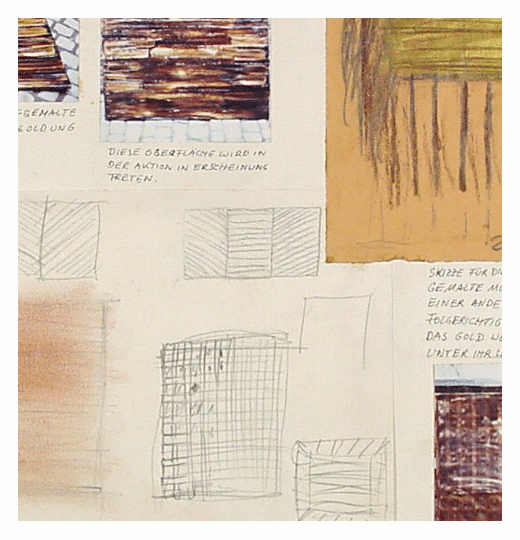 GEMALTE
GOLDUNG
DIESE OBERFLÄCHE WIRD IN
DER AKTION IN ERSCHEINUNG
TRETEN.
SKIZZE FÜR DI
GEMALTE
EINER ANDE
FOLGERICHTIG
DAS GOLD WE
UNTER IHR